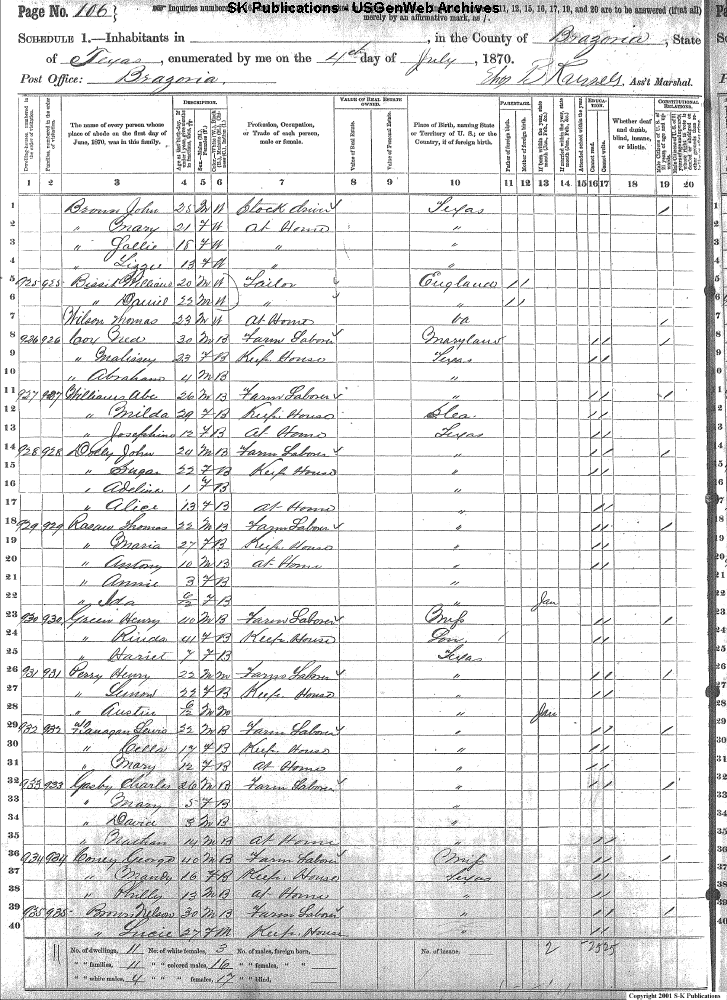 Page No. 106
SK Publications USGenWeb Archives
Inquiries numbered 11, 12, 15, 16, 17, 19, and 20 are to be answered (if at all) merely by an affirmative mark, as /.
SCHEDULE 1.—Inhabitants in , in the County of Brazoria, State
of Texas, enumerated by me on the 4th day of July, 1870.
Post Office: Brazoria. Ass't Marshal.
Dwelling-houses numbered in the order of visitation.
Families, numbered in the order of visitation.
The name of every person whose place of abode on the first day of June, 1870, was in this family.
DESCRIPTION.
Profession, Occupation, or Trade of each person, male or female.
VALUE OF REAL ESTATE OWNED.
Value of Real Estate.
Value of Personal Estate.
Place of Birth, naming State or Territory of U. S.; or the Country, if of foreign birth.
PARENTAGE.
Father of foreign birth.
Mother of foreign birth.
If born within the year, state month (Jan., Feb., &c.)
If married within the year, state month (Jan., Feb., &c.)
Attended school within the year.
EDUCATION.
Cannot read.
Cannot write.
Whether deaf and dumb, blind, insane, or idiotic.
CONSTITUTIONAL RELATIONS.
1 2 3 4 5 6 7 8 9 10 11 12 13 14 15 16 17 18 19 20
1 Brown John 25 M W Stock driver Texas /
2 " Mary 21 F W At Home "
3 " Sallie 15 F W " "
4 " Lizzie 13 F W "
5 925 925 Bissit William 20 M W Sailor England / /
6 " Daniel 22 M W " " / /
7 Wilson Thomas 23 M W At Home Va /
8 926 926 Cox Fred 30 M B Farm Laborer Maryland / / /
9 " Malissey 23 F B Keep. House Texas / /
10 " Abraham 4 M B "
11 927 927 Williams Abe 26 M B Farm Laborer " / / /
12 " Milda 29 F B Keep. House / /
13 " Josephine 12 F B At Home Texas / /
14 928 928 John 24 M B Farm Laborer " / / /
15 " Sugar 22 F B Keep House " / /
16 " Adeline 1 F B "
17 " Alice 13 F B at Home " / /
18 929 929 Thomas 22 M B Farm Laborer " / / /
19 " Maria 27 F B Keep. House " / /
20 " Antony 10 M B at Home " / /
21 " Annie 3 F B "
22 " Ida 6/12 F B " Jan
23 930 930 Green Henry 40 M B Farm Laborer Miss / / /
24 " 41 F B Keep House / /
25 " Hariel 7 F B Texas
26 931 931 Perry Henry 22 M M Farm Laborer " / / /
27 " 22 F B Keep. House " / /
28 " Austin 6/12 M M " Jan
29 932 932 Flanagan Lewis 22 M B Farm Laborer " / / /
30 " Cella 17 F B Keep. House " / /
31 " Mary 12 F B At Home " / /
32 933 933 Gasby Charles 26 M B Farm Laborer " / / /
33 " Mary 5 F B "
34 " David 8 M B "
35 " Nathan 14 M B at Home " / /
36 934 934 Coney George 40 M B Farm Laborer Miss / / /
37 " Mandy 16 F B Keep. House Texas / /
38 " Philly 13 M B at Home " / /
39 935 935 Brown Nelson 30 M B Farm Laborer " / / /
40 " Lucie 27 F M Keep. House " / /
No. of dwellings, 11 No. of white females, 3 No. of males, foreign born,
" " families, 11 " " colored males, 16 " " females, "
" " white males, 4 " " " females, 17 " " blind,
No. of insane,
2 25 25
Copyright 2001 S-K Publications